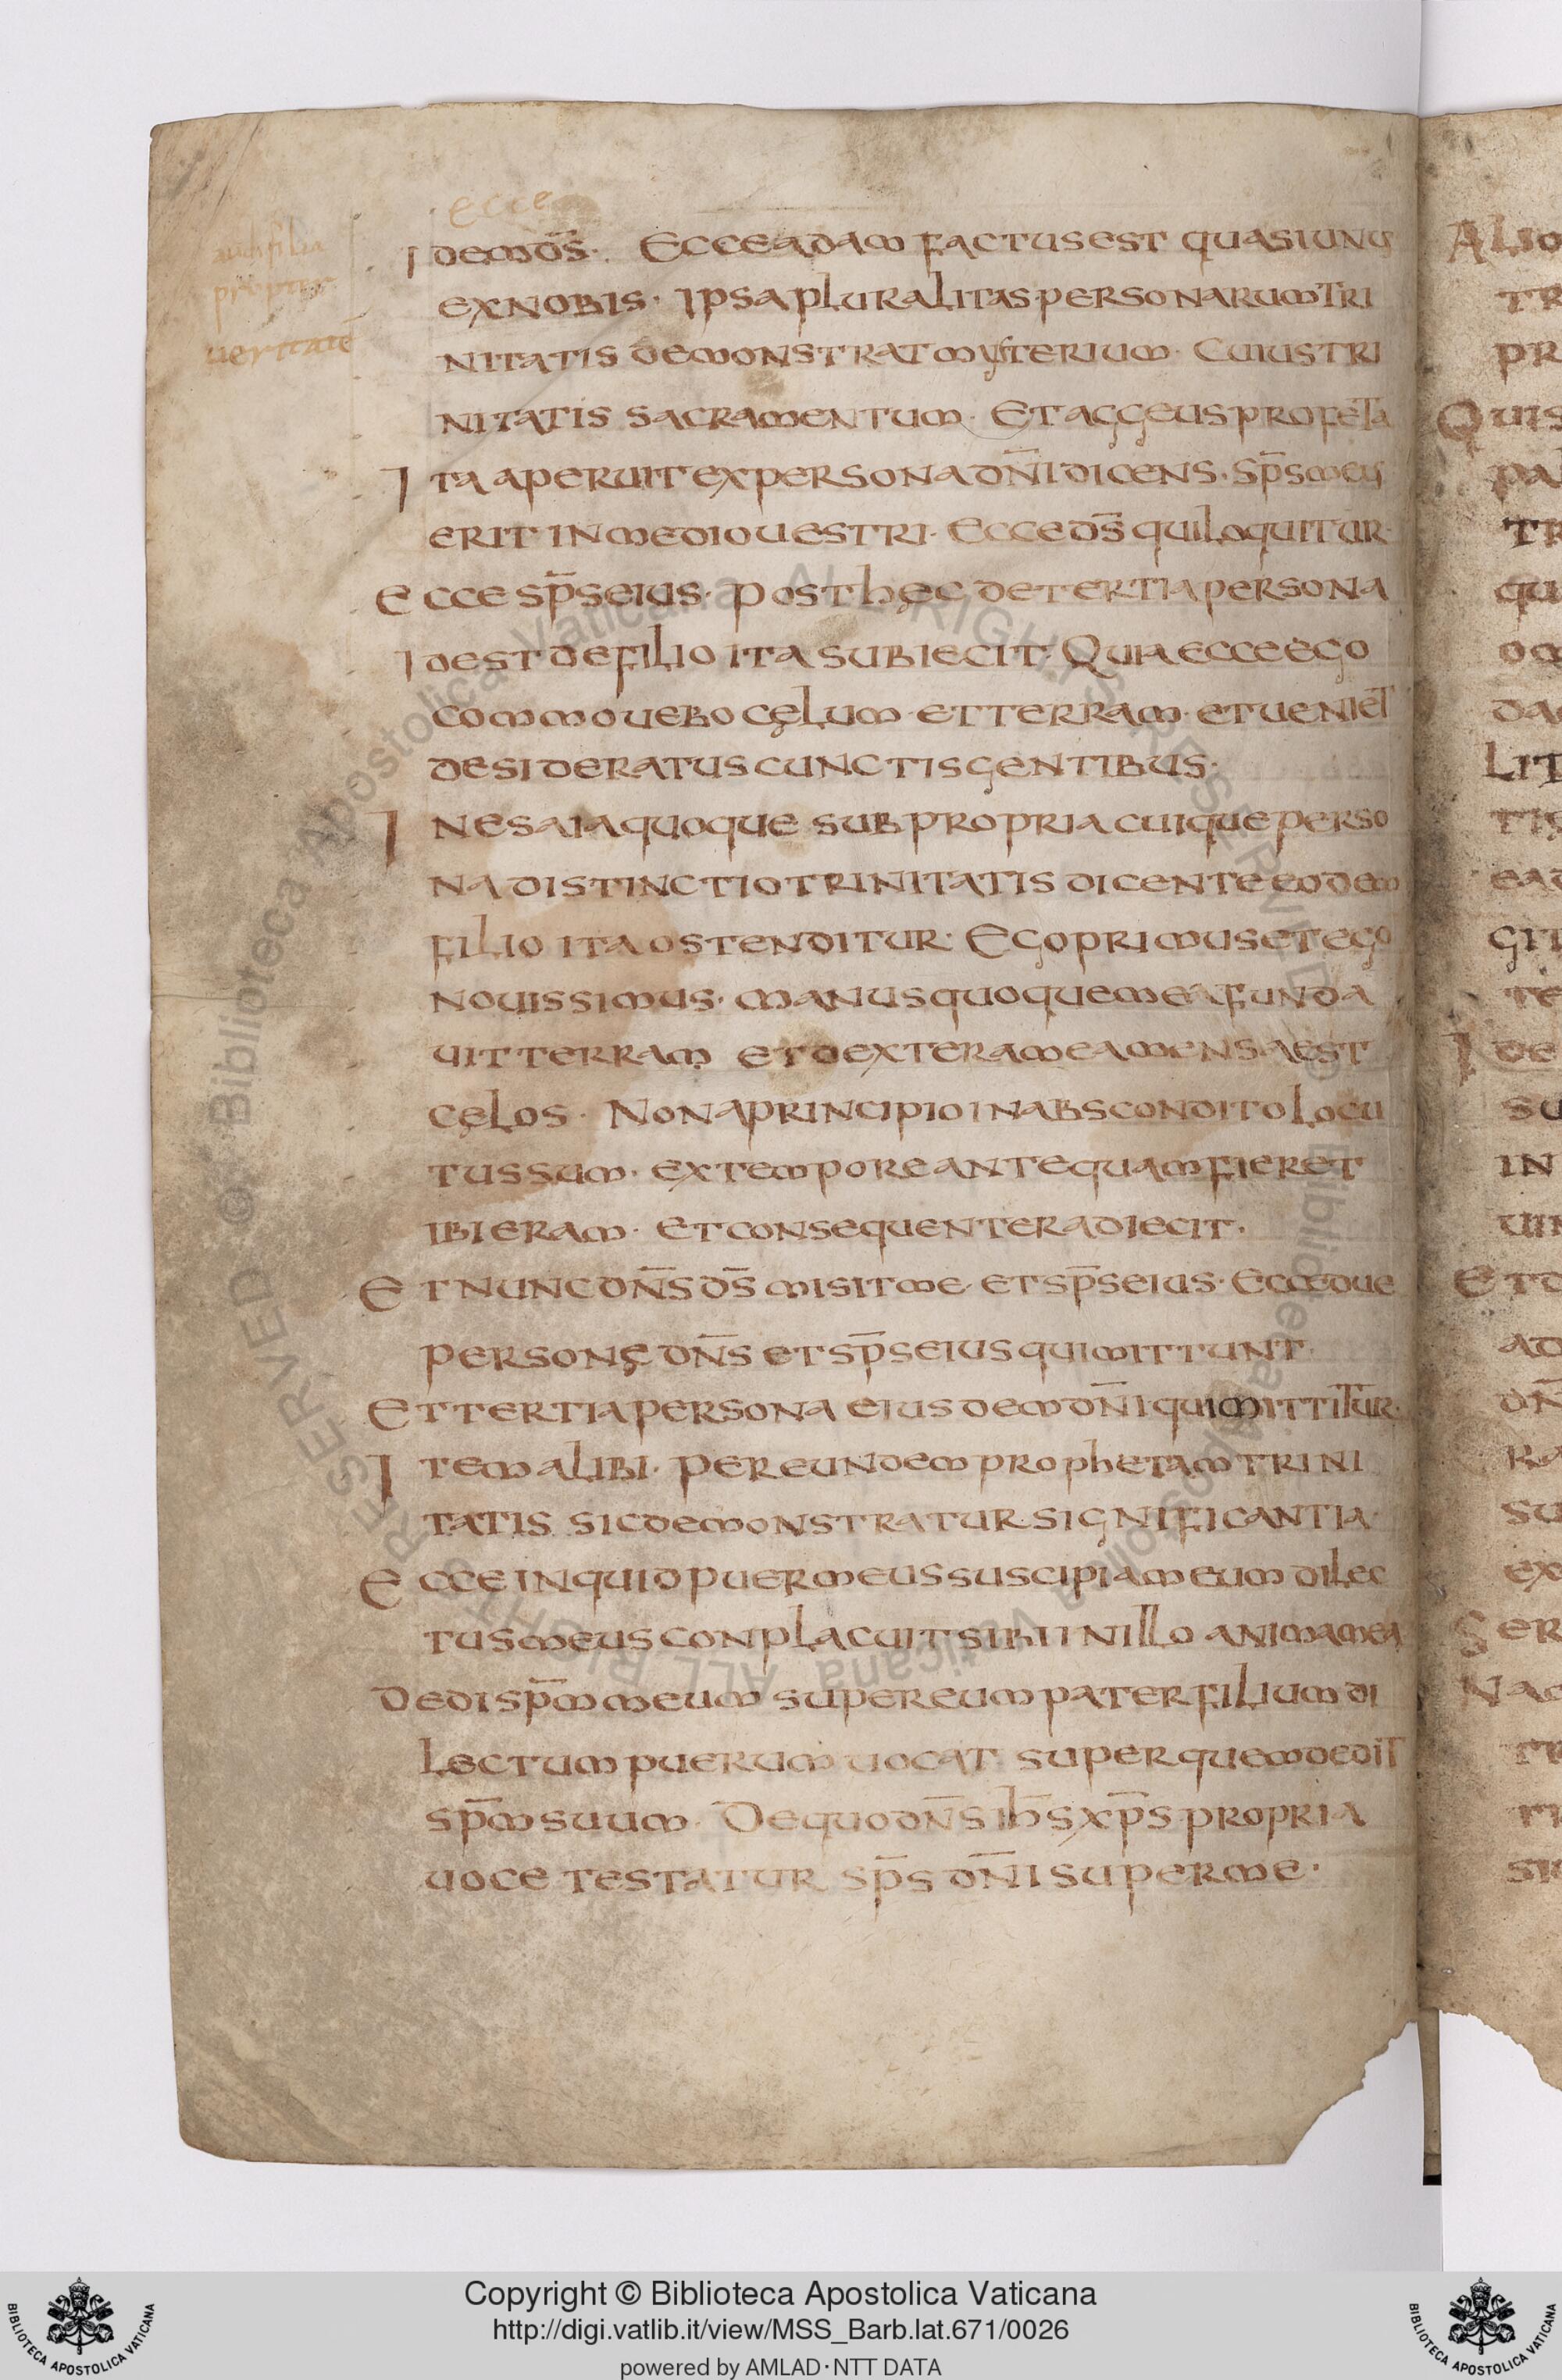 ecce
audi filia
propter
ueritatē
Idem d̅s̅. Ecce adam factus est quasi unus
ex nobis. Ipsa pluralitas personarum tri
nitatis demonstrat mysterium. Cuius tri
nitatis sacramentum. Et aggeus profeta
Ita aperuit ex persona dn̅i dicens. Sp̅s meus
erit in medio uestri. Ecce d̅s̅ qui loquitur.
Ecce sp̅s eius. post hęc de tertia persona
Id est de filio ita subiecit. Quia ecce ego
commouebo cęlum et terram. et ueniet
desideratus cunctis gentibus.
In esaia quoque sub propria cuique perso
na distinctio trinitatis dicente eodem
filio ita ostenditur. Ego primus et ego
nouissimus. manus quoque mea funda
uit terram et dextera mea mensa est
cęlos. Non a principio in abscondito locu
tus sum. ex tempore antequam fieret
ibi eram. et consequenter adiecit.
Et nunc dn̅s d̅s̅ misit me et sp̅s eius. Ecce due
personę dn̅s et sp̅s eius qui mittunt.
Et tertia persona eiusdem dn̅i qui mittitur.
Item alibi. per eundem prophetam trini
tatis sic demonstratur significantia.
Ecce inquid puer meus suscipiam eum dilec
tus meus conplacuit sibi in illo anima mea
Dedi sp̅m meum super eum pater filium di
lectum puerum uocat super quem dedit
sp̅m suum. De quo dn̅s ih̅s xp̅s propria
uoce testatur sp̅s dn̅i super me.
Copyright © Biblioteca Apostolica Vaticana
http://digi.vatlib.it/view/MSS_Barb.lat.671/0026
powered by AMLAD·NTT DATA
BIBLIOTECA APOSTOLICA VATICANA
BIBLIOTECA APOSTOLICA VATICANA